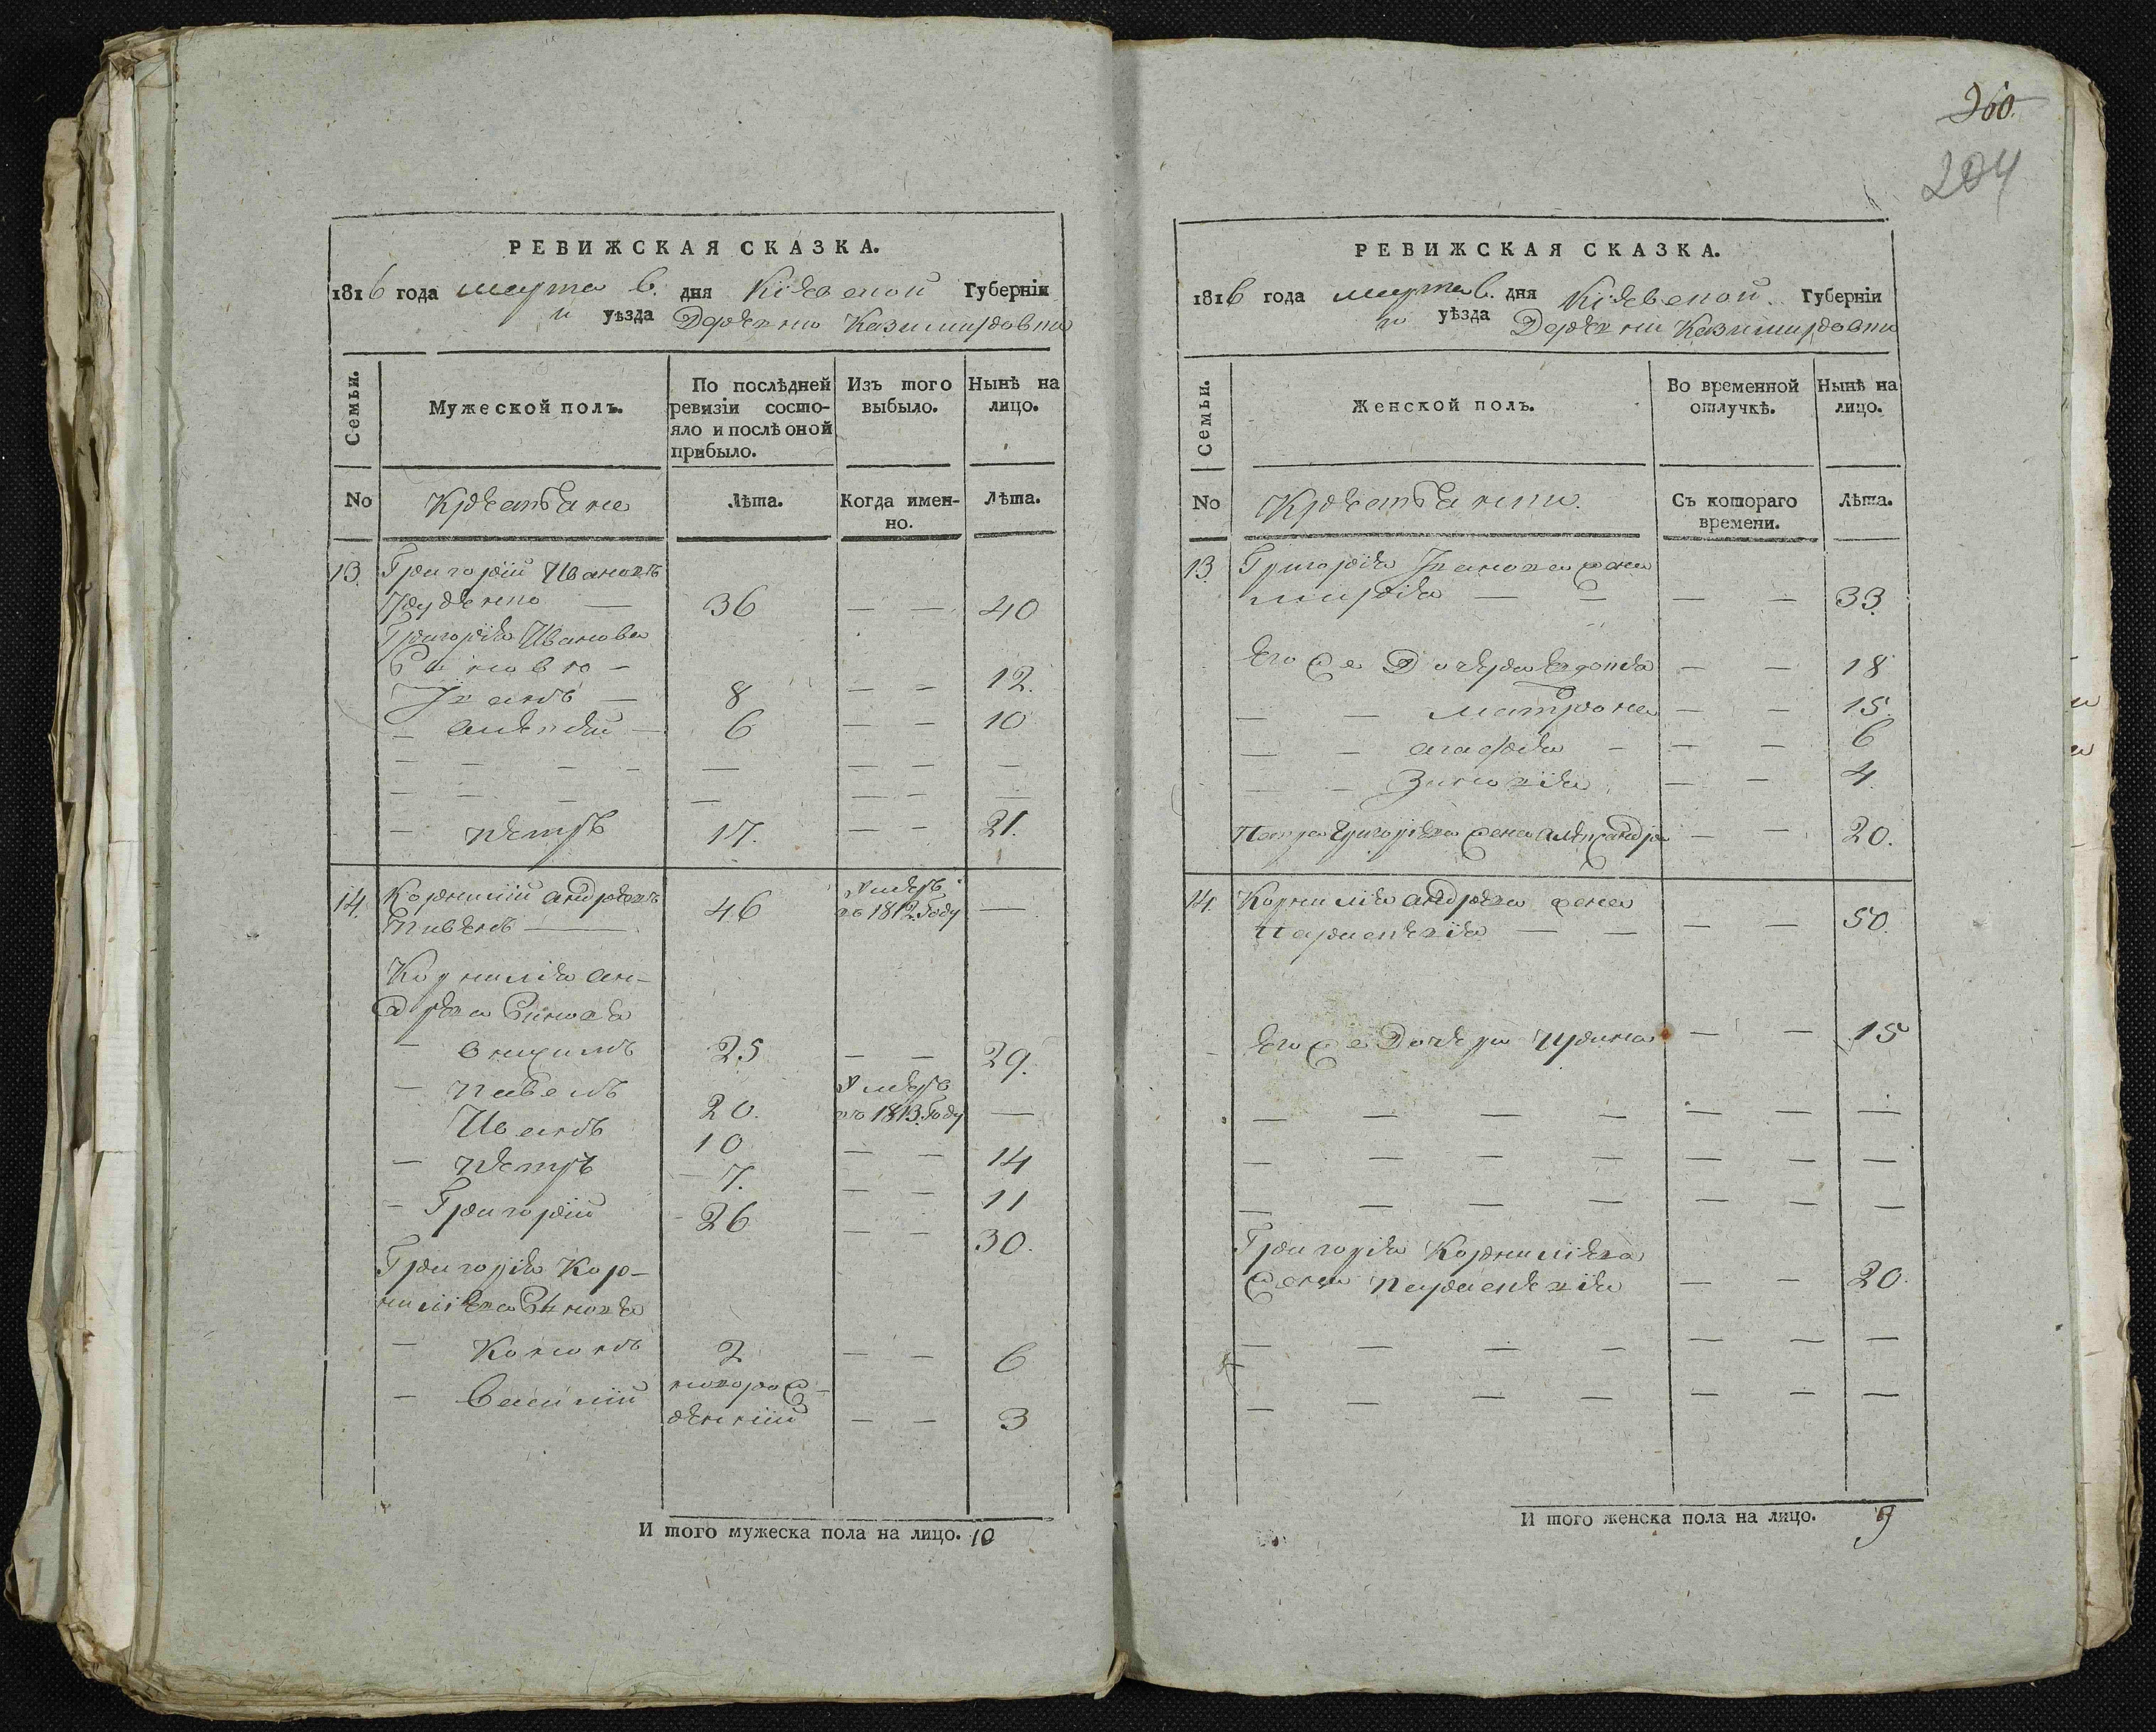 РЕВИЖСКАЯ СКАЗКА.
1816 года марта 6. дня Кіевской Губерніи
и уѣзда Деревни Казимировки
Семьи.
Мужеской полъ.
По послѣдней ревизіи состояло и послѣ оной прибыло.
Изъ того выбыло.
Нынѣ на лицо.
No
Крестьяне
Лѣта.
Когда именно.
Лѣта.
13. Григорій Ивановъ
36 — — 40
Григорія Иванова
Синовю —
Іванъ — 8 — — 12.
— Алексій — 6 — — 10
— — — — — — — —
— — — — — — —
— Петръ 17. — — 21.
14. Корнилій Андреевъ 46 Умеръ —
Пивень — во 1812. Году
Корнилія Ан-
дреева Синовя
— Онисимъ 25 — — 29.
— Павелъ 20. Умеръ во 1813. Году —
Иванъ 10 — — 14
— Петръ 7. — — 11
— Григорій 26 — — 30.
Григорія Кор-
ниліева Синовя
— Кононъ 2 — — 6
— Василій новорож-
денній — — 3
И того мужеска пола на лицо. 10
260.
204
РЕВИЖСКАЯ СКАЗКА.
1816 года марта 6. дня Кіевской Губерніи
го уѣзда Деревни Казимировки
Семьи.
Женской полъ.
Во временной отлучкѣ.
Нынѣ на лицо.
No
Крестьянки.
Съ котораго времени.
Лѣта.
13. Григорія Іванова жена
Марія — — — — 33.
Его же Дочера Евдокія — — 18
— — Матрона — — 15.
— — Агафія — — — 6
— — Зиновія — — 4.
Петра Григоріева жена Александра — — 20.
14. Корнилія Андреева жена
Параскевія — — — — 50.
Его же Дочера Ирина — — 15
— — — — — — —
— — — — — — —
— — — — — — —
Григорія Корниліева
жена Параскевія — — 20.
— — — — — — —
— — — — — — —
И того женска пола на лицо. 9